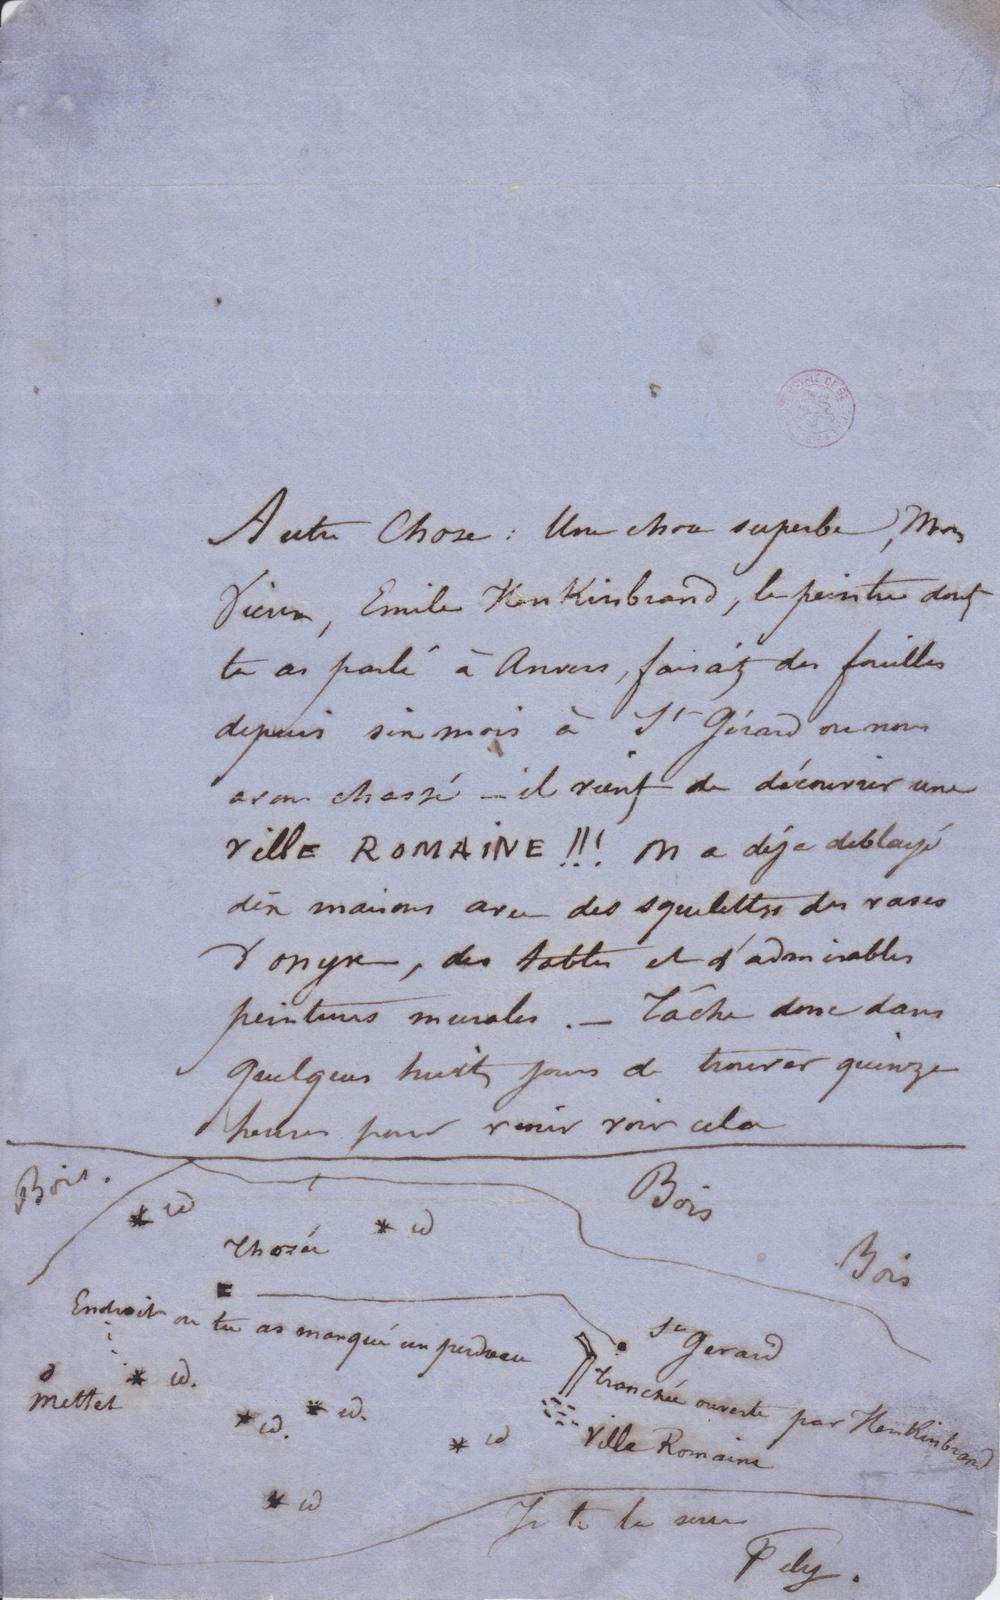 Autre Chose : Une chose superbe, Mon
Vieux, Emile HenKinbrand, le peintre dont
te as parlé à Anvers, faisait des fouilles
depuis six mois à St Gérard ou nous
avons chassé – il vient de découvrir une
VillE ROMAiNE !!! On a déja deblayé
dix maisons avec des squelettes des vases
d'onyx, des tables et d'admirables
peintures murales. – Tâche donc dans
quelques huit jours de trouver quinze
heures pour venir voir cela
Bois.
Bois
Bois
id
id
Thozée
Endroit ou tu as manqué un perdreau
St Gerard
Mettet
id.
Tranchée ouverte par HenKinbrand
id.
id.
Ville Romaine
id
id
Je te la serre
Fély.